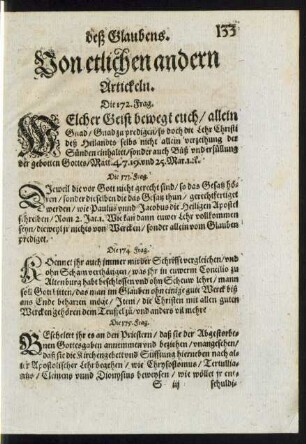 133
deß Glaubens.
Von etlichen andern
Artickeln.
Die 172. Frag.
WElcher Geist bewegt euch / allein
Gnad / Gnad zu predigen / so doch die Lehr Christi
deß Heilandts selbs nicht allein verzeihung der
Sünden einhaltet / sonder auch Bůß vnd erfüllung
der gebotten Gottes / Matt. 4. 7. 19. vnd 25. Mar. 1.
Die 173. Frag.
DJeweil die vor Gott nicht gerecht sind / so das Gesatz hö-
ren / sonder dieselben die das Gesatz thun / gerechtfertiget
werden / wie Paulus vnnd Jacobus die Heiligen Apostel
schreiben / Rom 2. Jac. 1. Wie kan dann ewer Lehr vollkommen
seyn / dieweyl jr nichts von Wercken / sonder allein vom Glauben
prediget.
Die 174. Frag.
KOennet jhr auch jmmer mit der Schrifft vergleichen / vnd
ohn Scham verthätigen / was jhr in ewerm Concilio zu
Altenburg habt beschlossen vnd ohn Schew lehrt / mann
soll Gott bitten / das man im Glauben ohn einiges gute Werck biß
ans Ende beharren möge / Jtem / die Christen mit allen guten
Wercken gehören dem Teuffel zu / vnd anders mehr
Die 175. Frag.
BEscheltet jhr es an den Priestern / daß sie der Abgestorbe-
nen Gottsgaben annemmen vnd bezichen / vnangesehen /
daß sie die Kirchengebett vnd Stifftung hierneben nach al-
ter Apostolischer Lehr begehen / wie Chrysostomus / Tertullia-
nus / Clemens vnnd Dionysius beweysen / wie wöllet jr ent-
S iij schuldi-